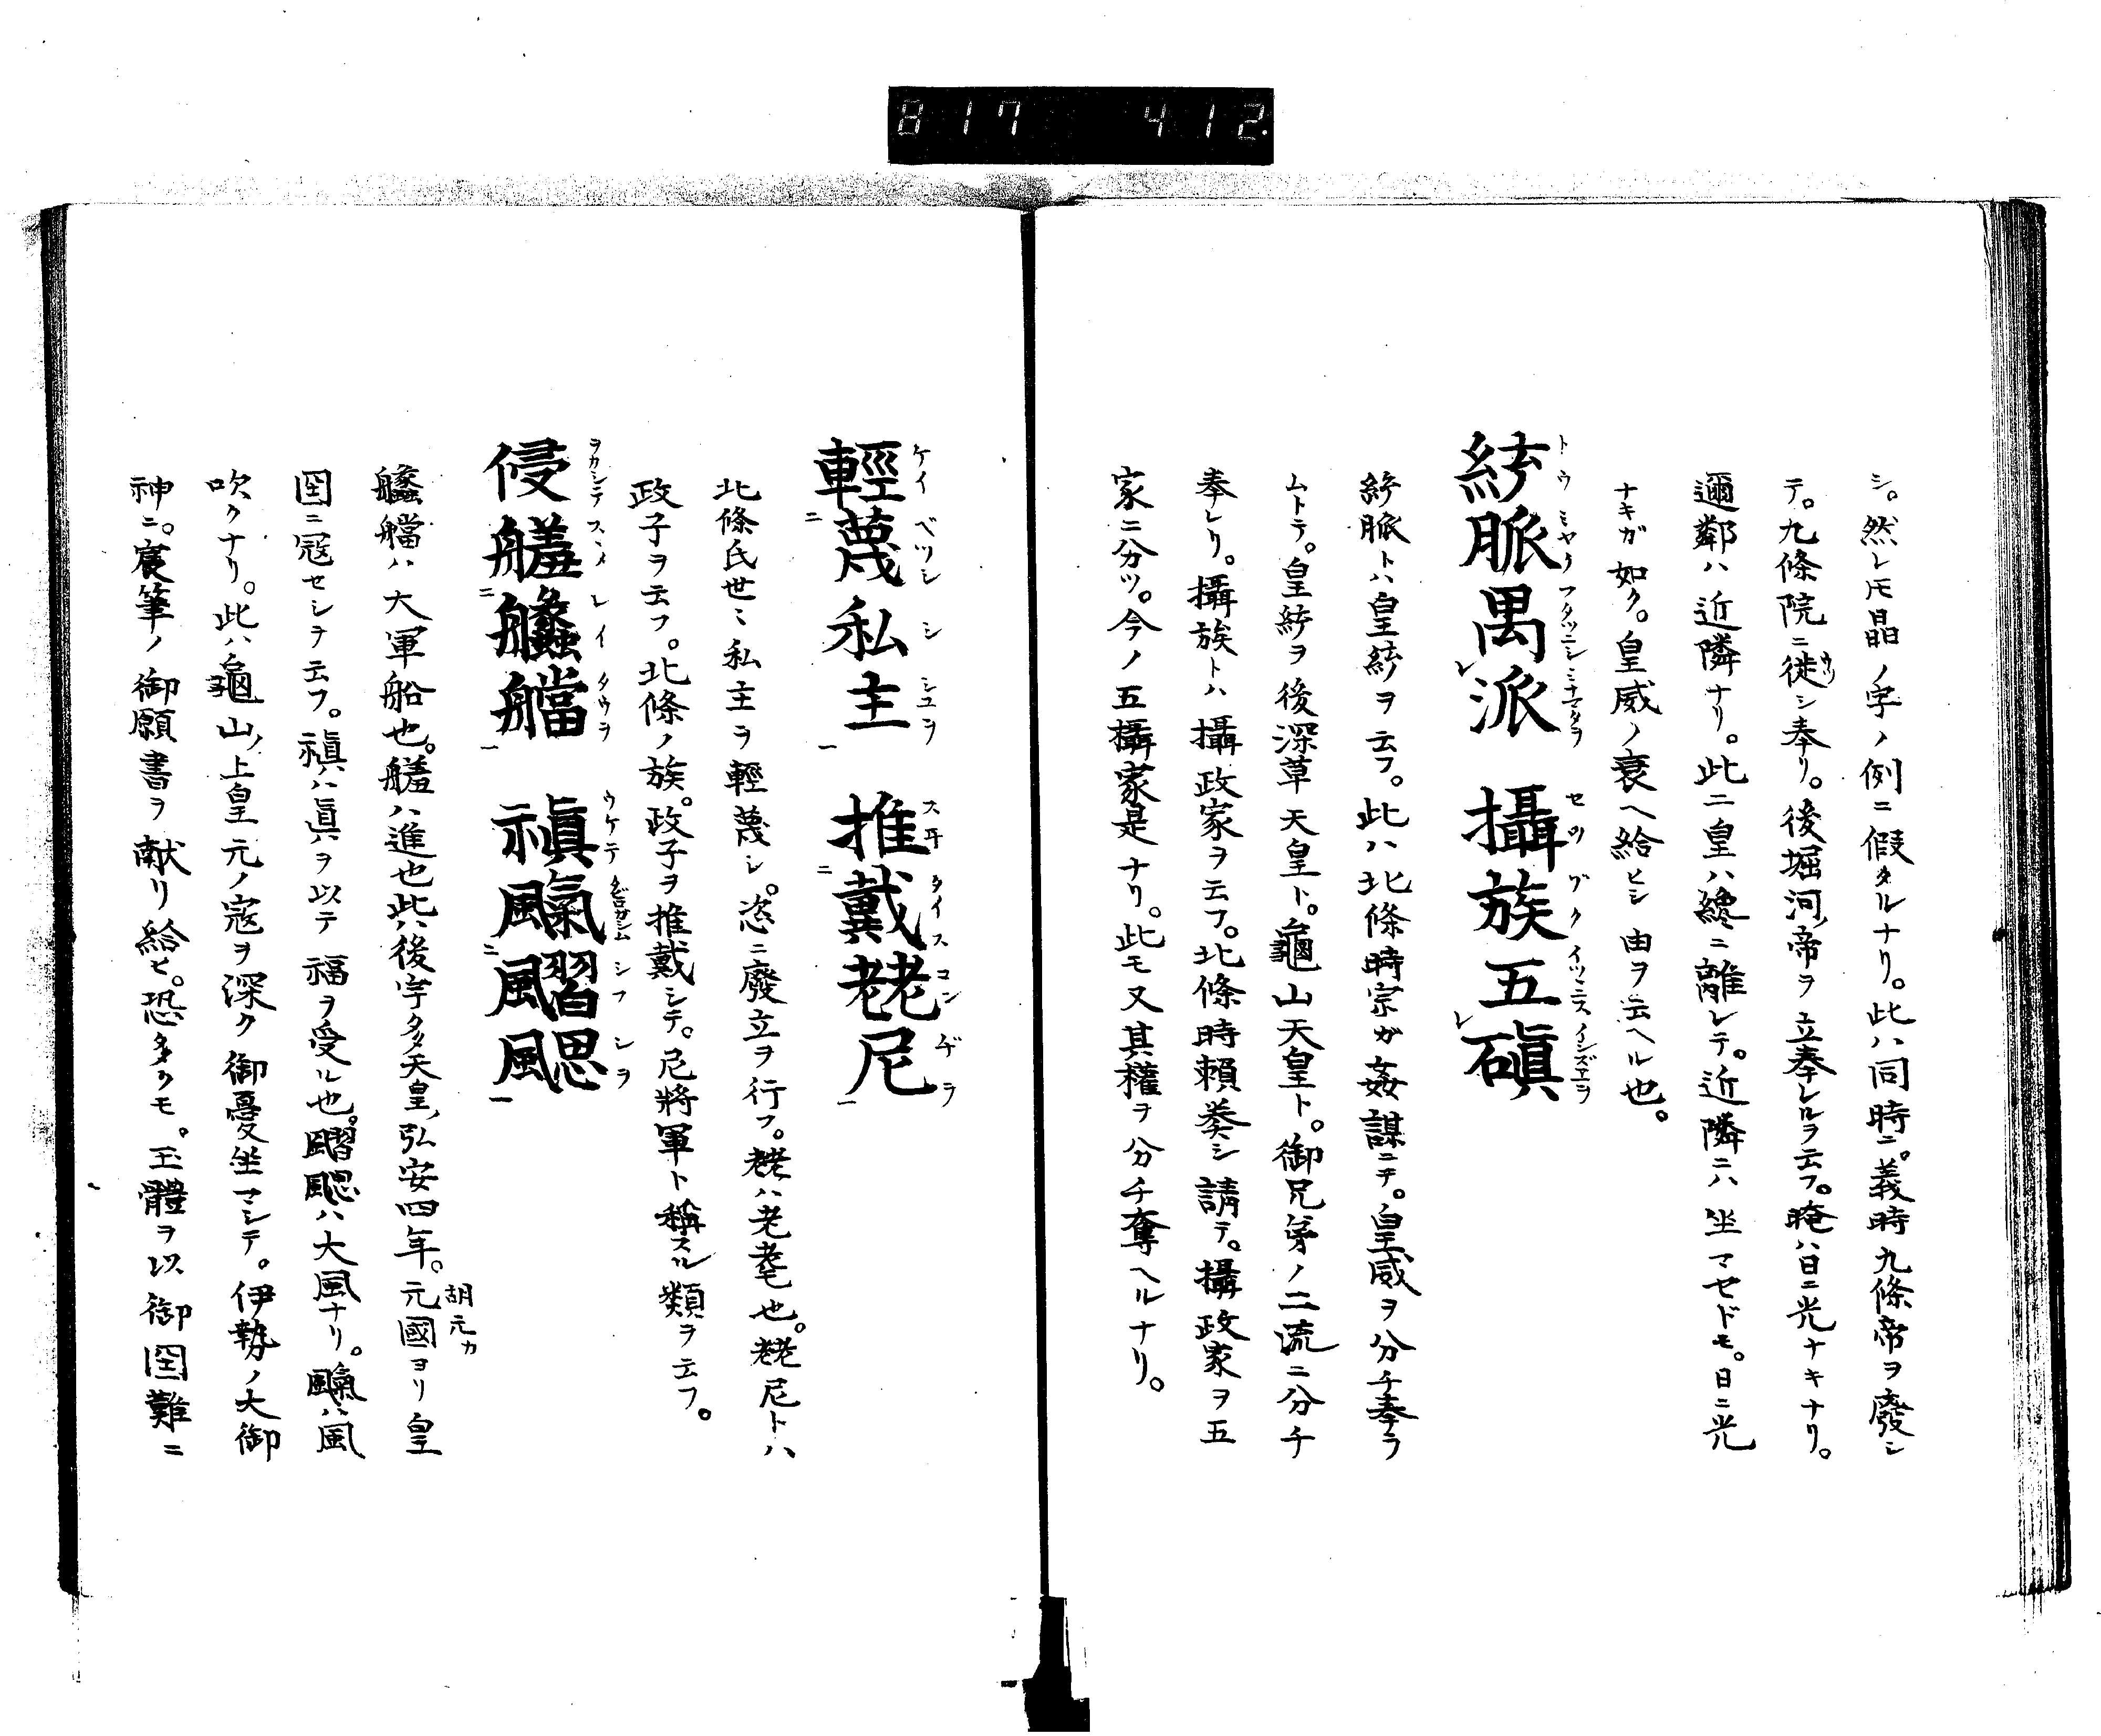 817 412.
シ。然レ𪜈晶ノ字ノ例ニ假タルナリ。此ハ同時ニ。義時九條帝ヲ廢シ
テ。九條院ニ徙シ奉リ。後堀河帝ヲ立奉レルヲ云フ。晻ハ日ニ光ナキナリ。
邇鄰ハ近隣ナリ。此二皇ハ終ニ離レテ。近隣ニハ坐マセドモ。日ニ光
ナキガ如ク。皇威ノ衰ヘ給ヒシ由ヲ云ヘル也。
脈禺派 攝族五磌
脈トハ皇ヲ云フ。此ハ北條時宗ガ姦謀ニテ。皇威ヲ分チ奉ラ
ムトテ。皇ヲ後深草天皇ト。龜山天皇ト。御兄弟ノ二流ニ分チ
奉レリ。攝族トハ攝政家ヲ云フ。北條時賴奏シ請テ。攝政家ヲ五
家ニ分ツ。今ノ五攝家是ナリ。此モ又其權ヲ分チ奪ヘルナリ。
輕蔑私主 推戴尼
ケイベツシシユヲ スヰタイスコンゲラ
北條氏世〻私主ヲ輕蔑シ。恣ニ廢立ヲ行フ。ハ老耄也。尼トハ
政子ヲ云フ。北條ノ族。政子ヲ推戴シテ。尼將軍ト稱スル類ヲ云フ。
侵艖艡 禛颸
ヲカシテススメレイタウヲ
艡ハ大軍船也。艖ハ進也此ハ後宇多天皇、弘安四年。元國ヨリ皇
胡元カ
囶ニ寇セシヲ云フ。禛ハ眞ヲ以テ福ヲ受ル也。颸ハ大風ナリ。ハ風
吹クナリ。此ハ龜山上皇元ノ寇ヲ深ク御憂坐マシテ。伊勢ノ大御
神ニ。宸筆ノ御願書ヲ献リ給ヒ。恐多クモ。玉體ヲ以御囶難ニ